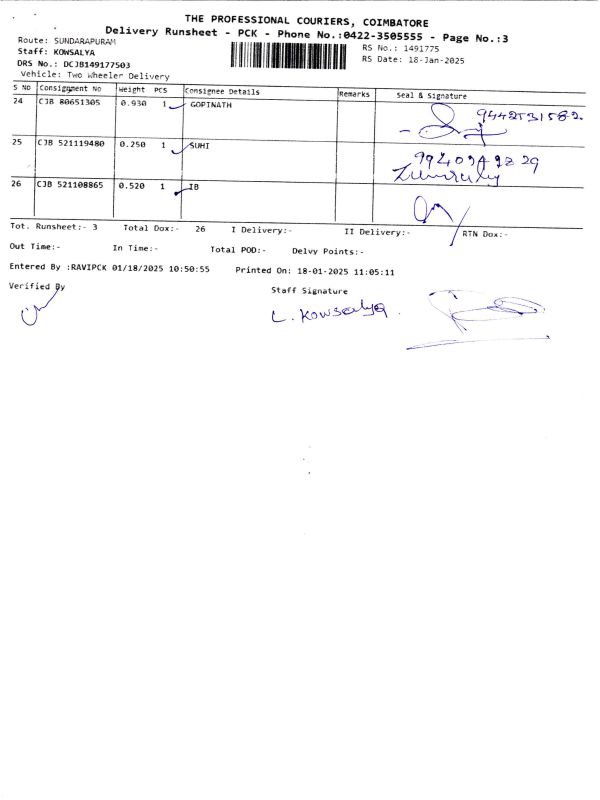 THE PROFESSIONAL COURIERS, COIMBATORE
Delivery Runsheet - PCK - Phone No.:0422-3505555 - Page No.:3
Route: SUNDARAPURAM
RS No.: 1491775
Staff: KOWSALYA
RS Date: 18-Jan-2025
DRS No.: DCJB149177503
Vehicle: Two Wheeler Delivery
S No Consignment No Weight PCS Consignee Details Remarks Seal & Signature
24 CJB 80651305 0.930 1 GOPINATH
25 CJB 521119480 0.250 1 SUHI
26 CJB 521108865 0.520 1 IB
Tot. Runsheet:- 3 Total Dox:- 26 I Delivery:- II Delivery:- RTN Dox:-
Out Time:- In Time:- Total POD:- Delvy Points:-
Entered By :RAVIPCK 01/18/2025 10:50:55 Printed On: 18-01-2025 11:05:11
Verified By
Staff Signature
L. Kowsalya